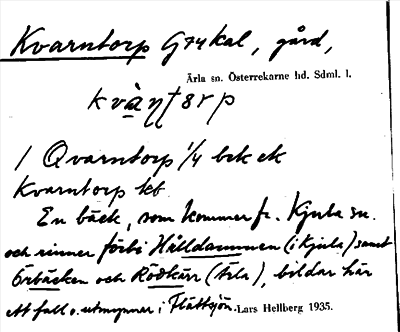 Kvarntorp G74 kal, gård,
Ärla sn. Österrekarne hd. Sdml. l.
/ Qvarntorp 1/4 bck ek
Kvarntorp kb
En bäck, som kommer fr. Kjula sn.
och rinner förbi Hålldammen (i Kjula) samt
Örbäcken och Rödkärr (Ärla), bildar här
ett fall o. utmynnar i Flättsjön.
Lars Hellberg 1935.